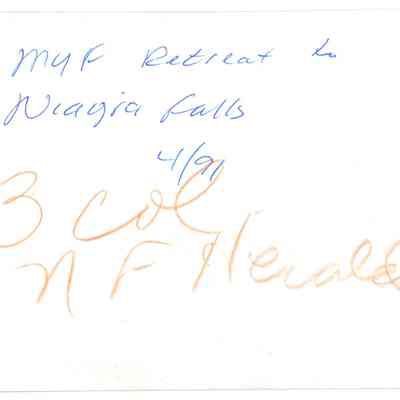 MYF Retreat to
Niagia Falls
4/91
3 col
NF Herald